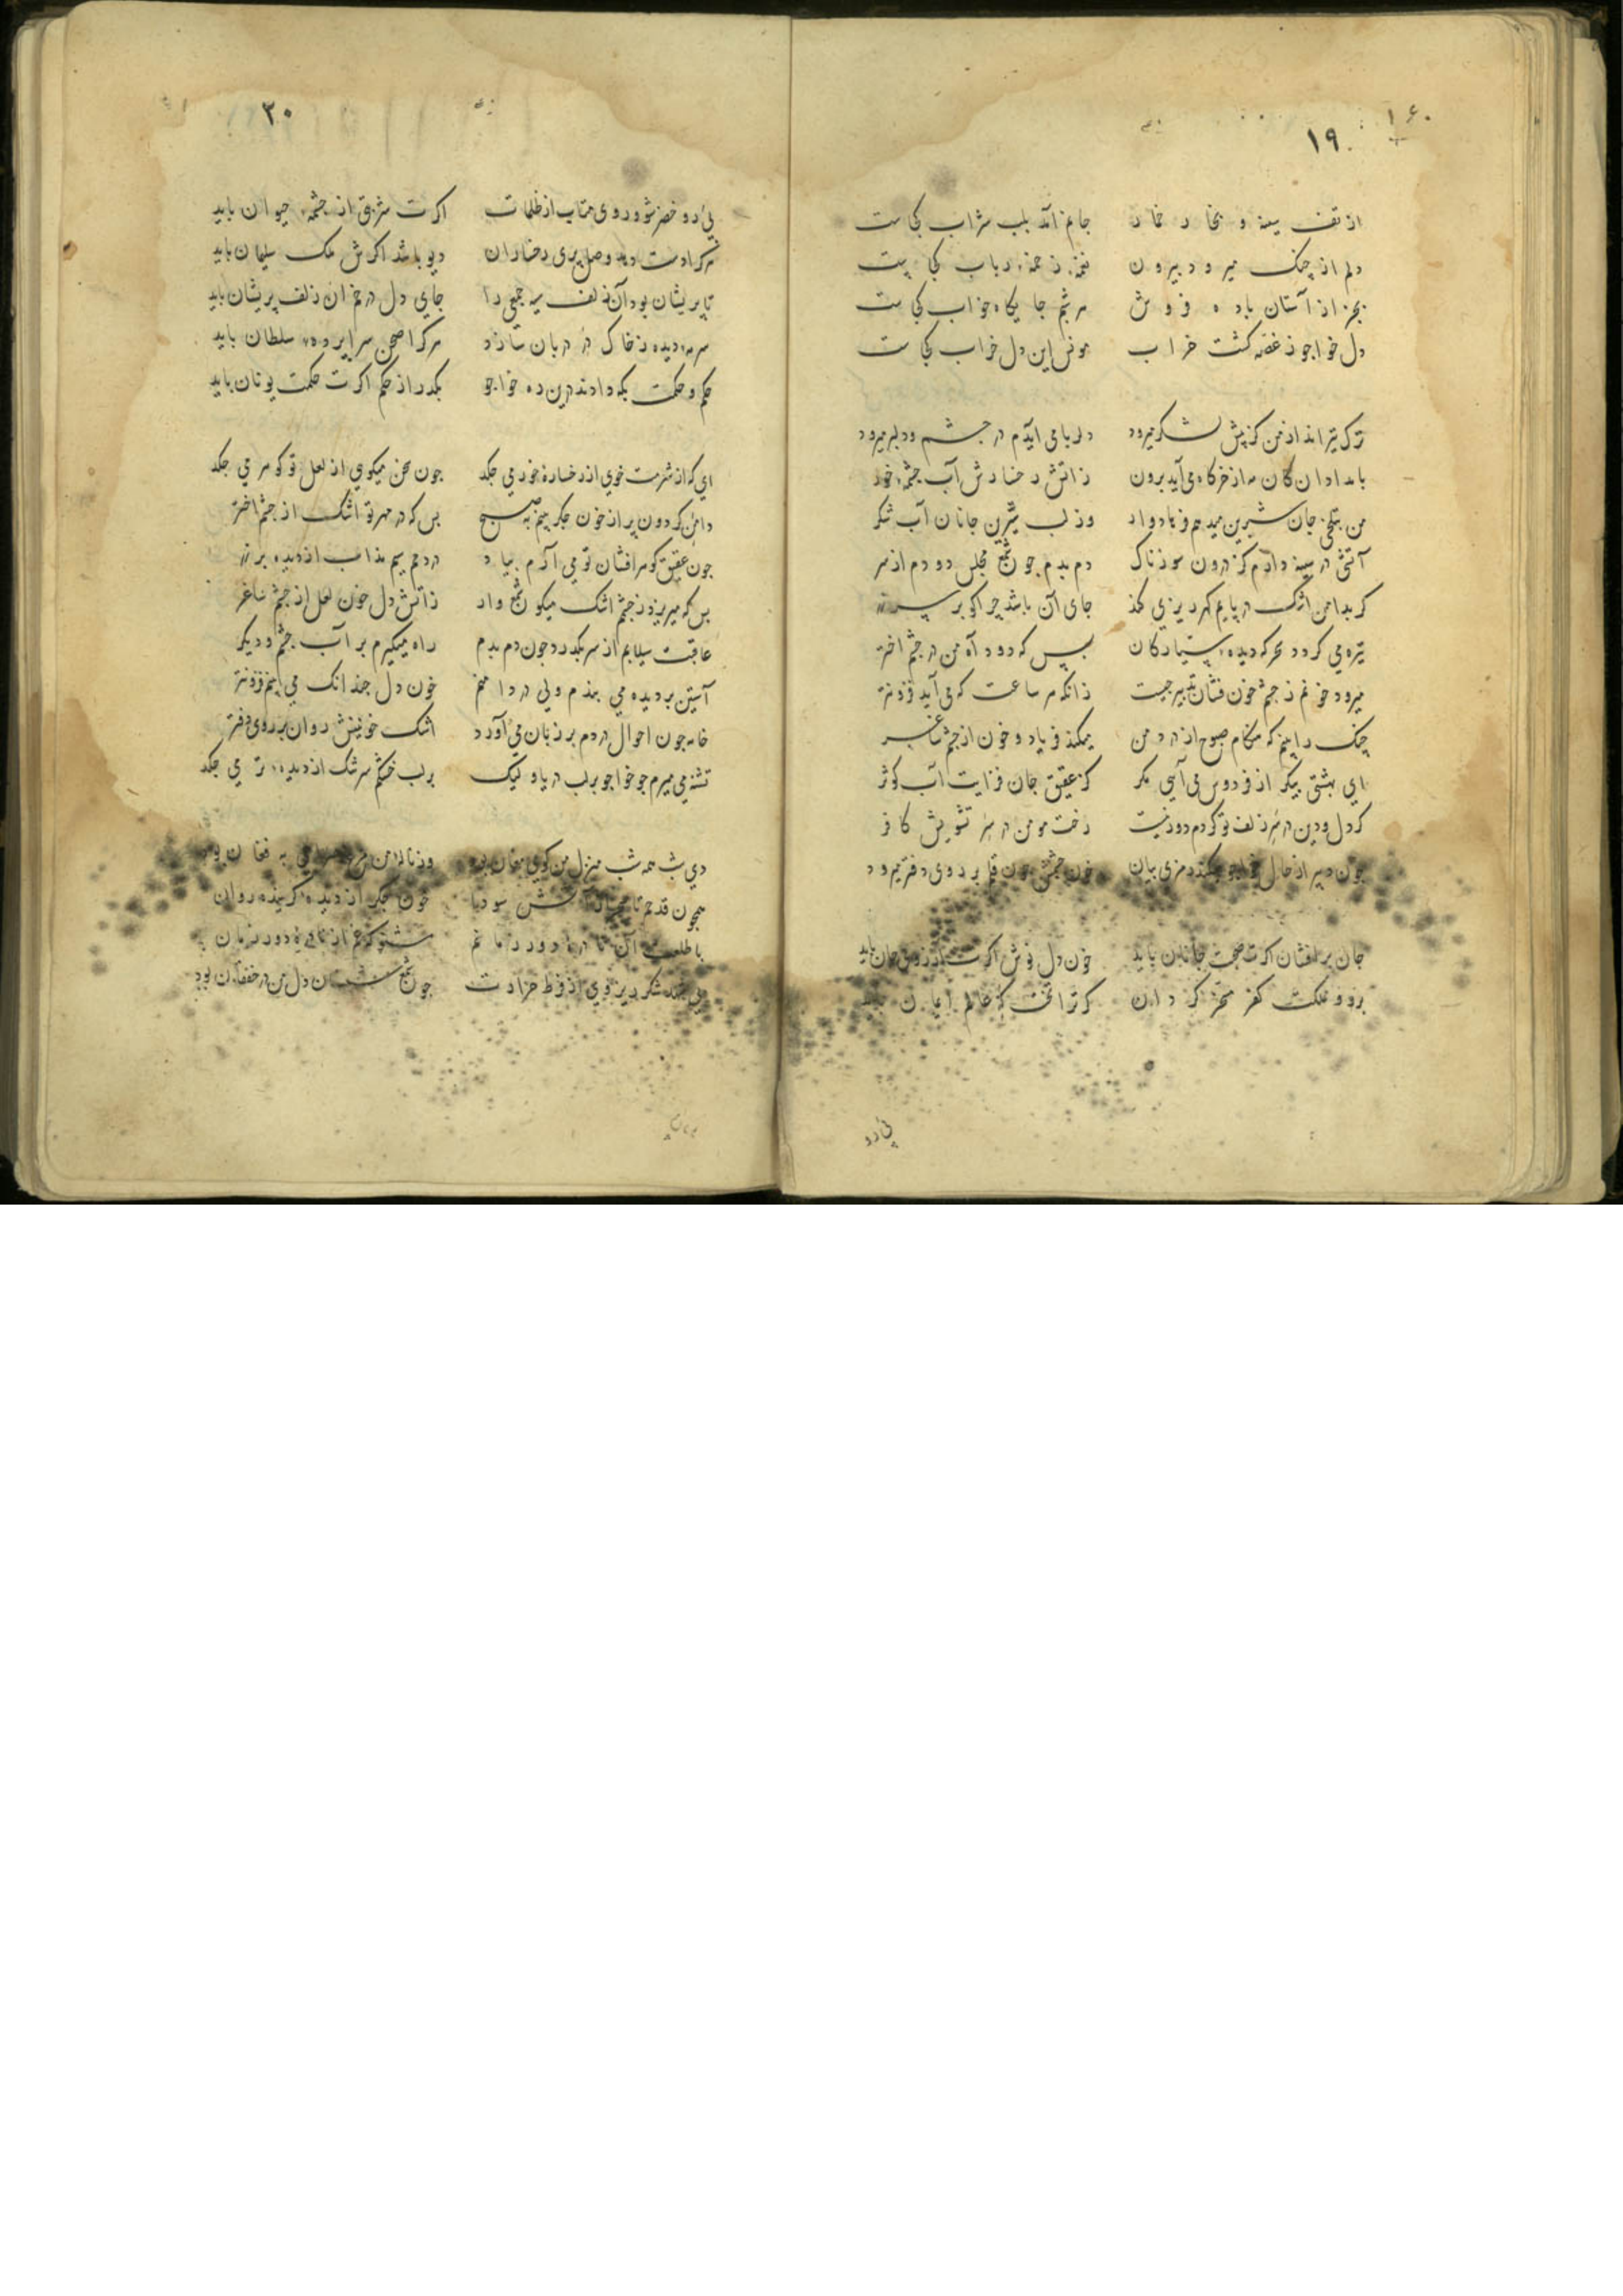 ۱۶۰
۱۹
از تف سینه و بخار خمار جانم آمد بلب شراب کجاست
دلم از چنک میرود بیرون نغمهٔ زخمهٔ رباب کجاست
بجز از آستان باده فروش هر شبم جایکاه خواب کجاست
دل خواجو ز غصه کشت خراب مونس این دل خراب کجاست
ترک تیرانداز من کز پیش لشکر میرود دلربا می آیدم در چشم و دلبر میرود
بامدادان کان مه از خرکاه می آید برون ز اتش رخسارش آب چشمهٔ خور
من بتلخی جان شیرین میدهم فرهادوار وز لب شیرین جانان آب شکر
آتشی در سینه دارم کز درون سوزناک دم بدم چون شمع مجلس دودم از سر
کر بدامن اشک در پایم کهر ریزی کند جای آن باشد چرا کو بر سر زر
تیره می کردد سحرکه دیدهٔ سیارکان بس که دود آه من در چشم اختر
میرود خونم ز چشم خون فشان تدبیر چیست زانکه هر ساعت که می آید فزونتر
چنک را بینم که هنکام صبوح از درد من میکند فریاد و خون از چشم ساغر
ای بهشتی پیکر از فردوس می آیی مکر کز عقیق جان فزایت آب کوثر
کر دل و دین در سر زلف تو کردم دور نیست رخت مومن در سر تشویش کافر
چون دبیر از حال خواجو میکند رمزی بیان خون چشمش چون قلم بر روی دفتر میرود
جان برافشان اکرت صحبت جانان باید خون دل نوش اکرت آرزوی جان باید
برو و مملکت کفر مسخر کردان کر ترا تختکه عالم ایمان باید
پی رو
۲۰
پی رو خضر شو و روی متاب از ظلمات اکرت شربتی از چشمهٔ حیوان باید
هر کرا دست دهد وصل پری رخساران دیو باشد اکرش ملک سلیمان باید
تا پریشان بود آن زلف سیه جمعی را جای دل در خم آن زلف پریشان باید
سرمهٔ دیده ز خاک در دربان سازد هر کرا صحن سراپردهٔ سلطان باید
حکم و حکمت بکه دادند درین ره خواجو بکدر از حکم اکرت حکمت یونان باید
ای که از شرمت خوی از رخسارهٔ خور می چکد چون سخن میکوی از لعل تو کوهر می چکد
دامن کردون پر از خون جکر بینم به صبح بس که در مهر تو اشک از چشم اختر
چون عقیق کوهرافشان تو می آرم بیاد در دمم سیم مذاب از دیده بر زر
بس که میریزد ز چشم اشک میکون شمع وار ز اتش دل خون لعل از چشم ساغر
عاقبت سیلابم از سر بکدرد چون دم بدم راه میکیرم بر آب چشم و دیکر
آستین بر دیده می بندم ولی در دامنم خون دل چندانک می بینم فزونتر
خامه چون احوال دردم بر زبان می آورد اشک خونینش روان بر روی دفتر
تشنه می میرم چو خواجو بر لب دریا و لیک بر لب خشکم سرشک از دیدهٔ تر می چکد
دی شب همه شب منزل من کوی مغان بود وز نالهٔ من مرغ صراحی به فغان بود
همچون قدحم تا سحر از آتش سودا خون جکر از دیدهٔ کرینده روان